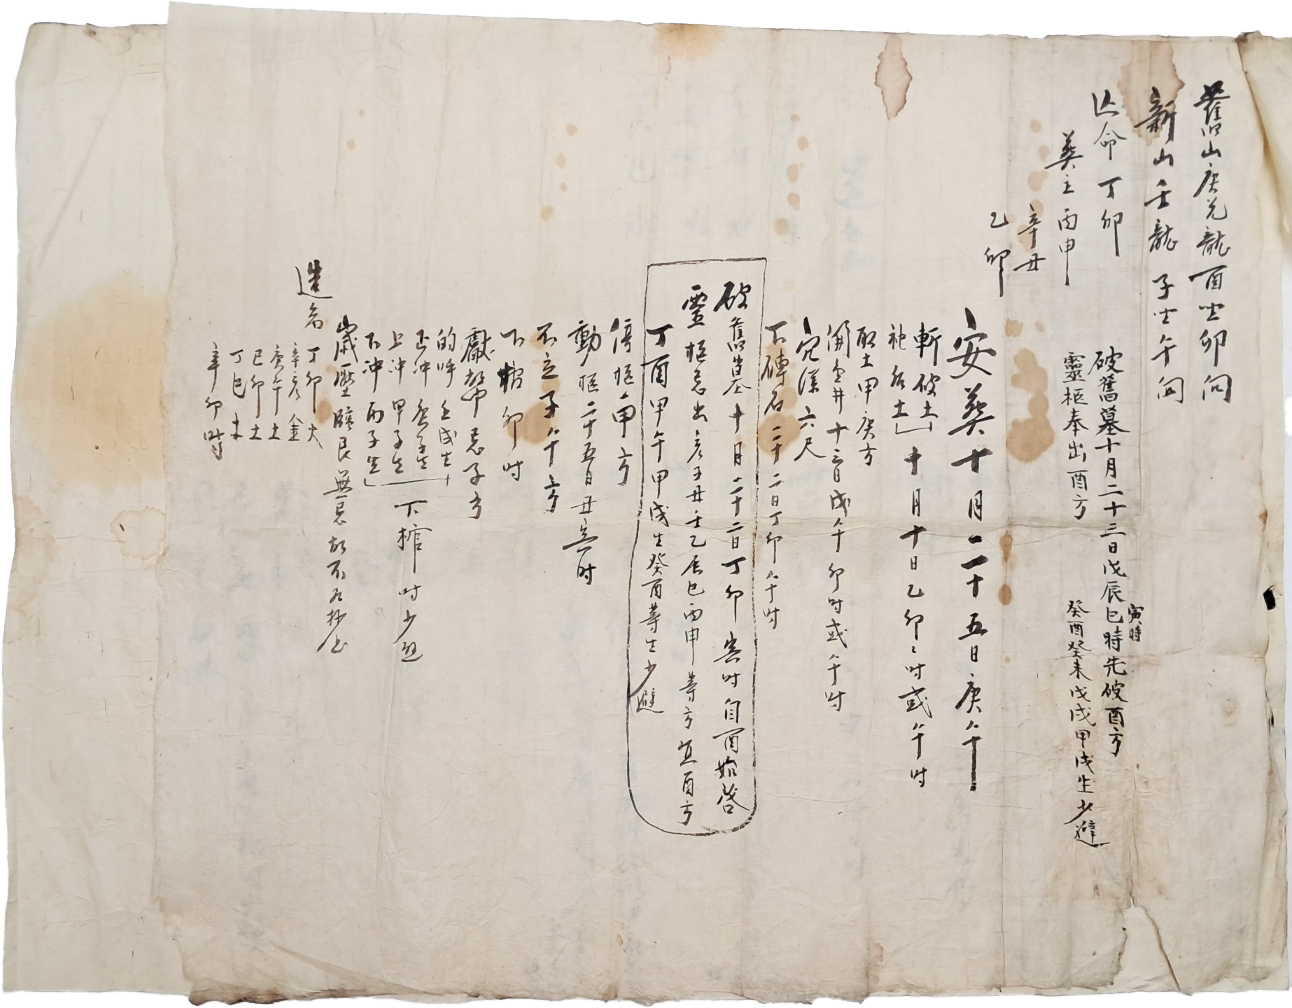 舊山庚兌龍酉坐卯向
新山壬龍 子坐午向
亡命丁卯
葬主丙申
辛丑
乙卯
破舊墓十月二十三日戊辰巳時先破酉方
寅時
靈柩奉出酉方 癸酉癸未戊戌甲戌生少避
安葬十月二十五日庚午
斬破土 十月十日乙卯卯時或午時
祀后土
取土甲庚方
開金井十三日戊午卯時或午時
穴深六尺
下磚石二十二日丁卯午時
破舊墓十月二十二日丁卯寅時自酉始啓
靈柩忌出亥子丑壬乙辰巳丙申等方宜酉方
丁酉甲午甲戌生癸酉等生少避
停柩申方
動柩二十五日丑寅時
不立子午方
下棺卯時
獻幣忌子方
的呼壬戌生
正冲
上冲甲子生
下冲丙子生
下棺時少避
歲壓臨艮無忌故不爲抄出
造命 丁卯火
辛亥金
庚午土
己卯土
丁巳土
辛卯時